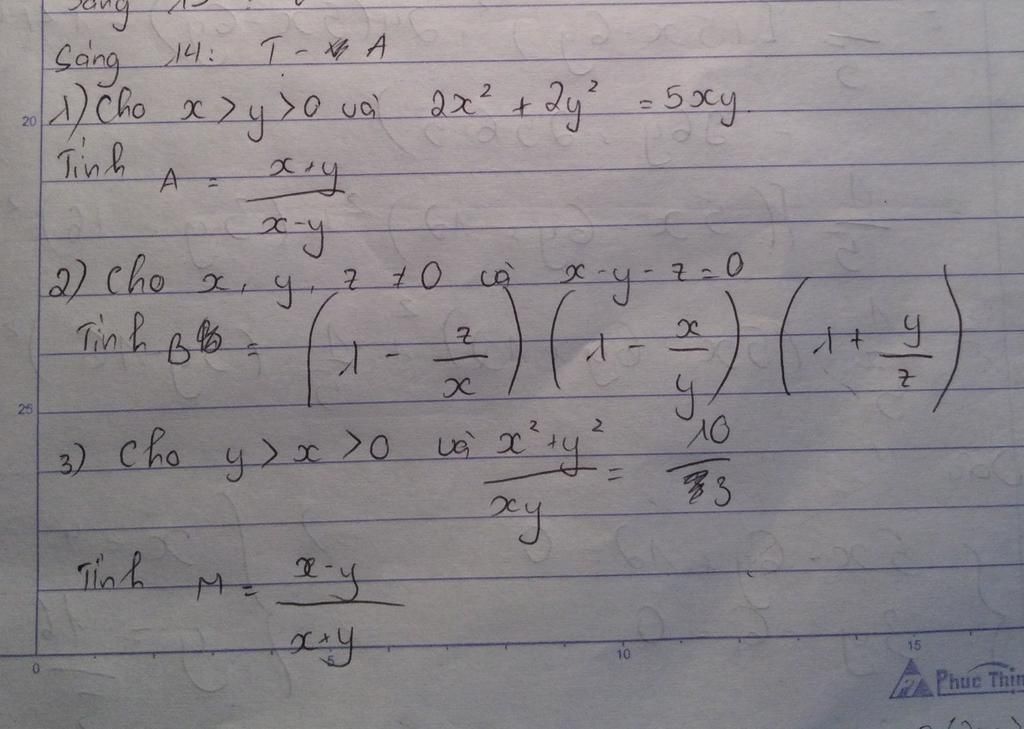 Sáng 14: T - A
1) Cho x > y > 0 và 2x² + 2y² = 5xy.
Tính A = \frac{x+y}{x-y}
2) Cho x, y, z ≠ 0 và x - y - z = 0
Tính B = (1 - \frac{z}{x}) (1 - \frac{x}{y}) (1 + \frac{y}{z})
3) Cho y > x > 0 và \frac{x²+y²}{xy} = \frac{10}{3}
Tính M = \frac{x-y}{x+y}
20
25
0 5 10 15
Phuc Thin